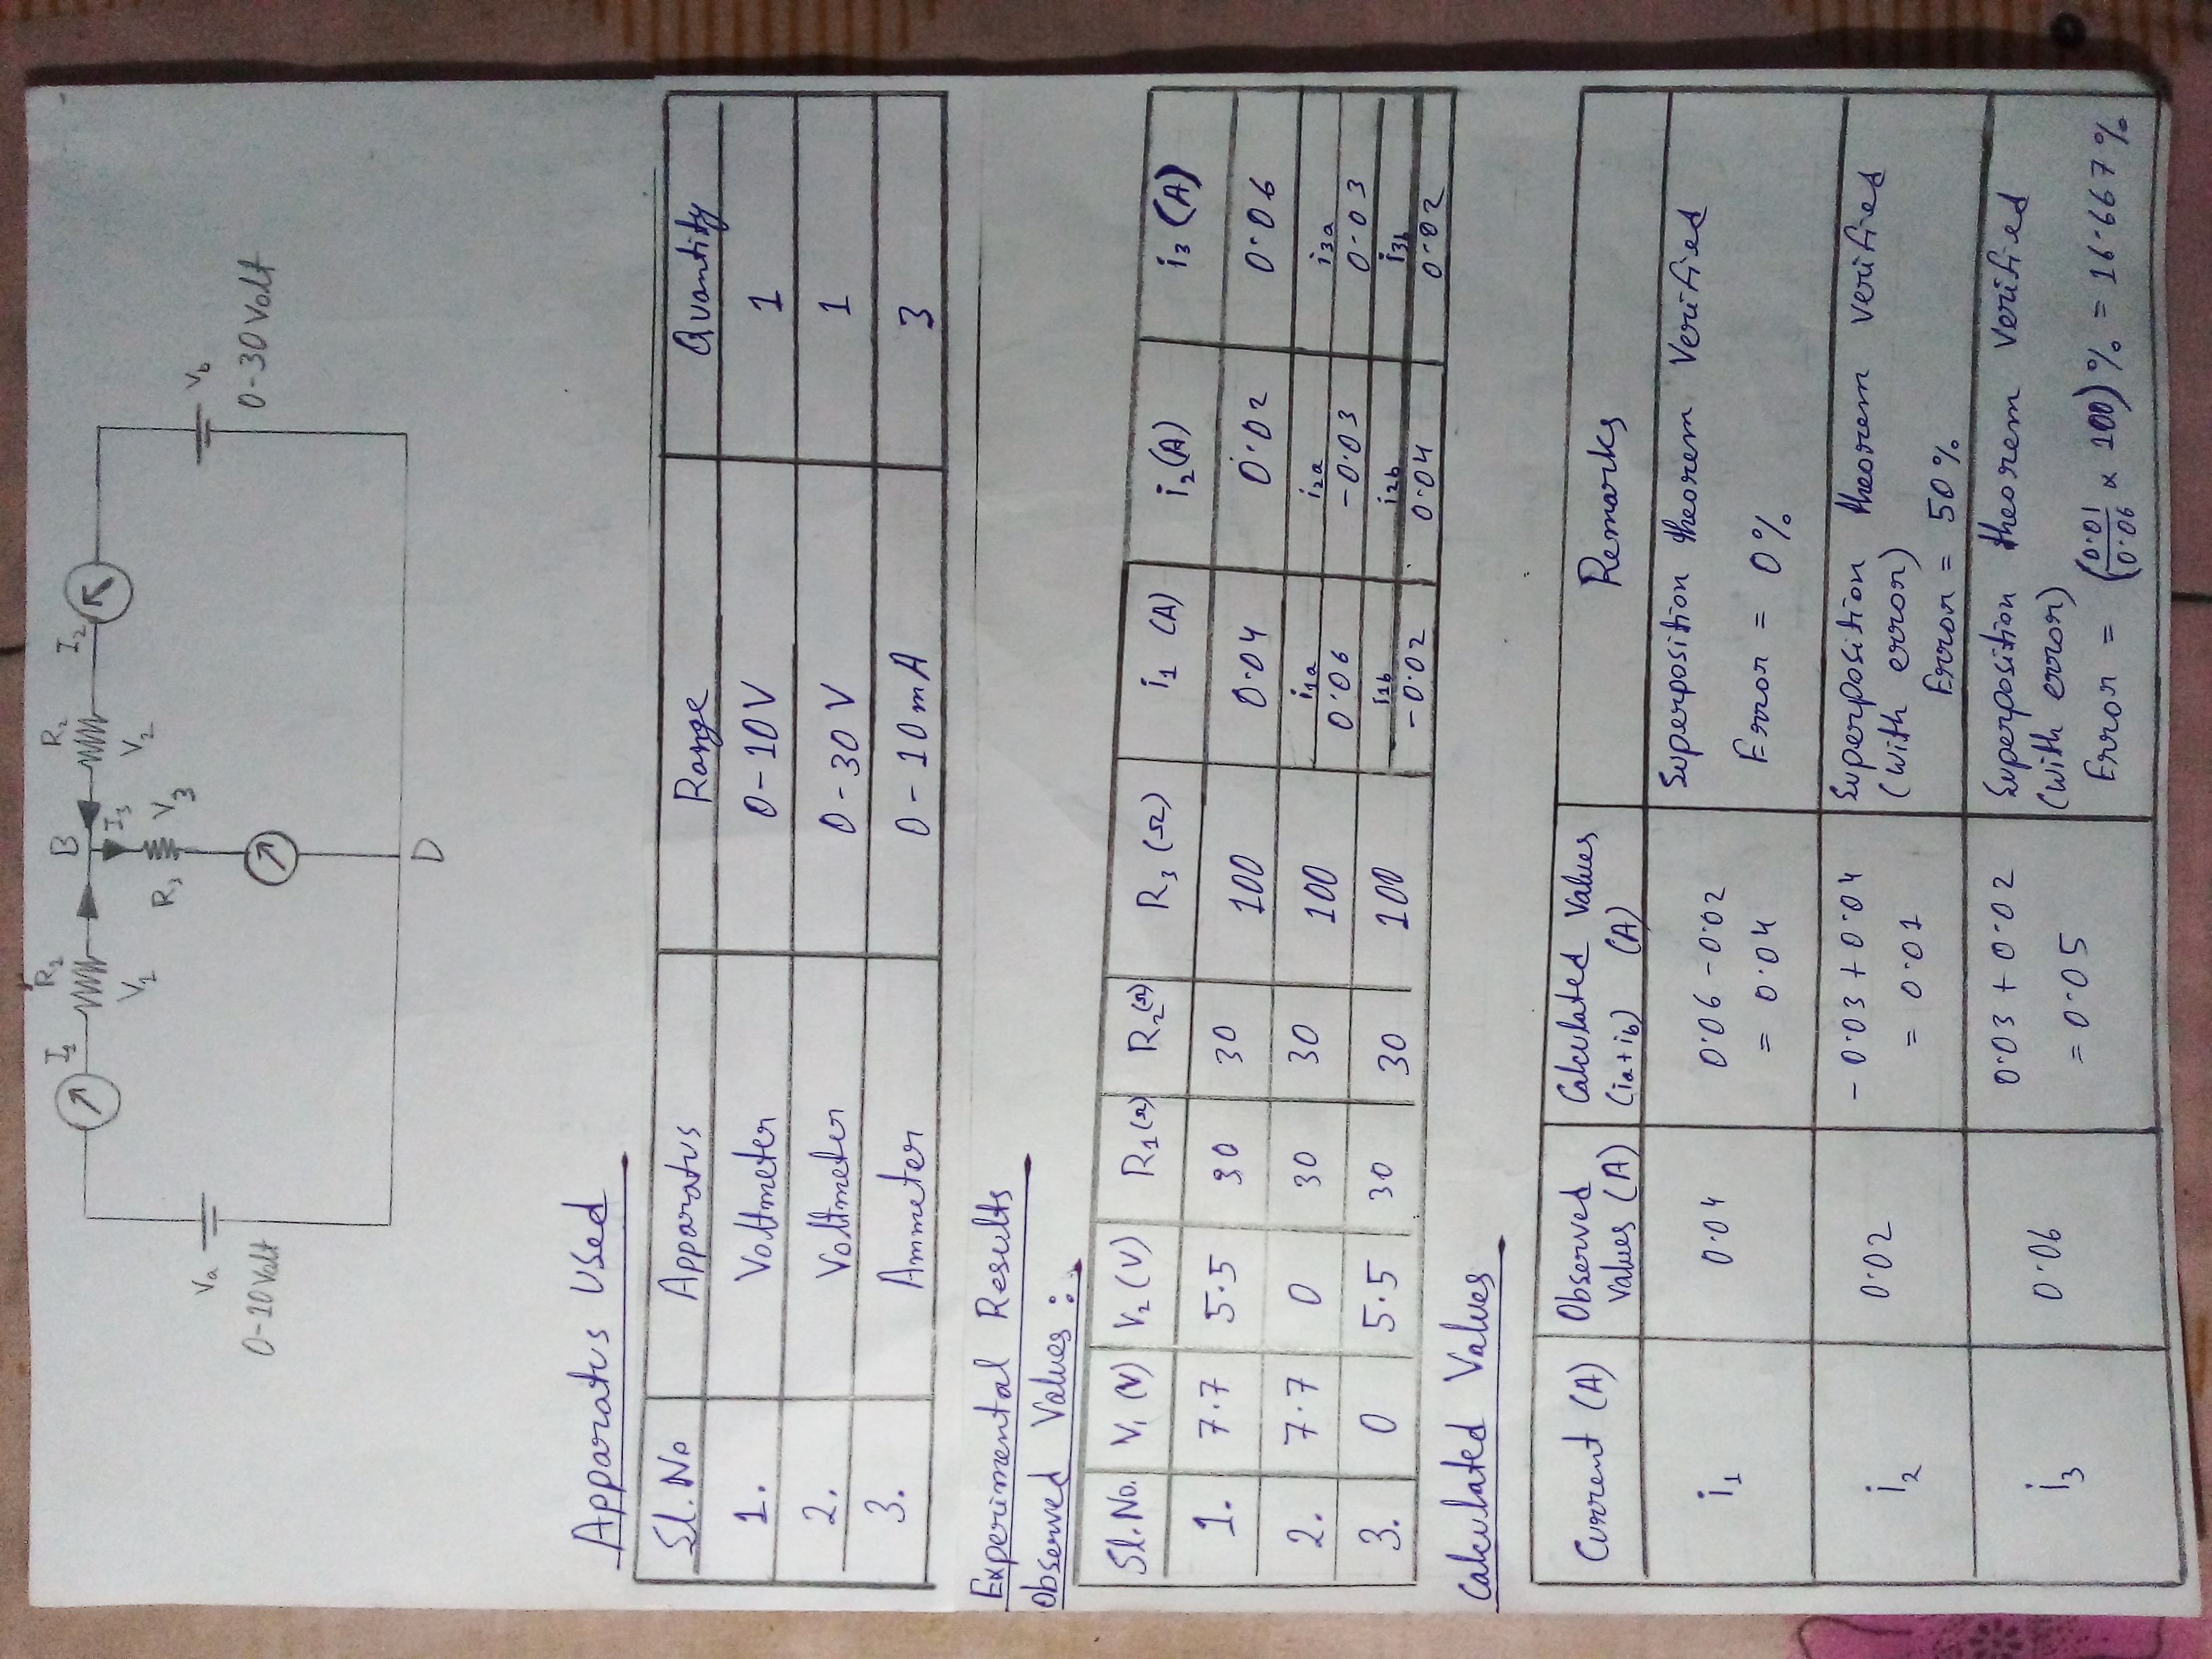 I₁ R₂ B R₂ I₂
V₁ I₃ V₂
R₃ V₃
Va Vb
0-10 Volt 0-30 Volt
D
Apparatus Used
Sl. No Apparatus Range Quantity
1. Voltmeter 0-10V 1
2. Voltmeter 0-30 V 1
3. Ammeter 0-10mA 3
Experimental Results
Observed Values :
Sl. No. V₁ (V) V₂ (V) R₁(Ω) R₂(Ω) R₃ (Ω) i₁ (A) i₂(A) i₃ (A)
1. 7.7 5.5 30 30 100 0.04 0.02 0.06
2. 7.7 0 30 30 100 i₁a i₂a i₃a
0.06 -0.03 0.03
3. 0 5.5 30 30 100 i₁b i₂b i₃b
-0.02 0.04 0.02
Calculated Values
Current (A) Observed Values (A) Calculated Values (ia+ib) (A) Remarks
i₁ 0.04 0.06 -0.02 Superposition theorem Verified
= 0.04 Error = 0%
i₂ 0.02 -0.03 + 0.04 Superposition theorem verified
= 0.01 (with error)
Error = 50%
i₃ 0.06 0.03 + 0.02 Superposition theorem verified
= 0.05 (with error)
Error = (0.01/0.06 × 100) % = 16.667 %